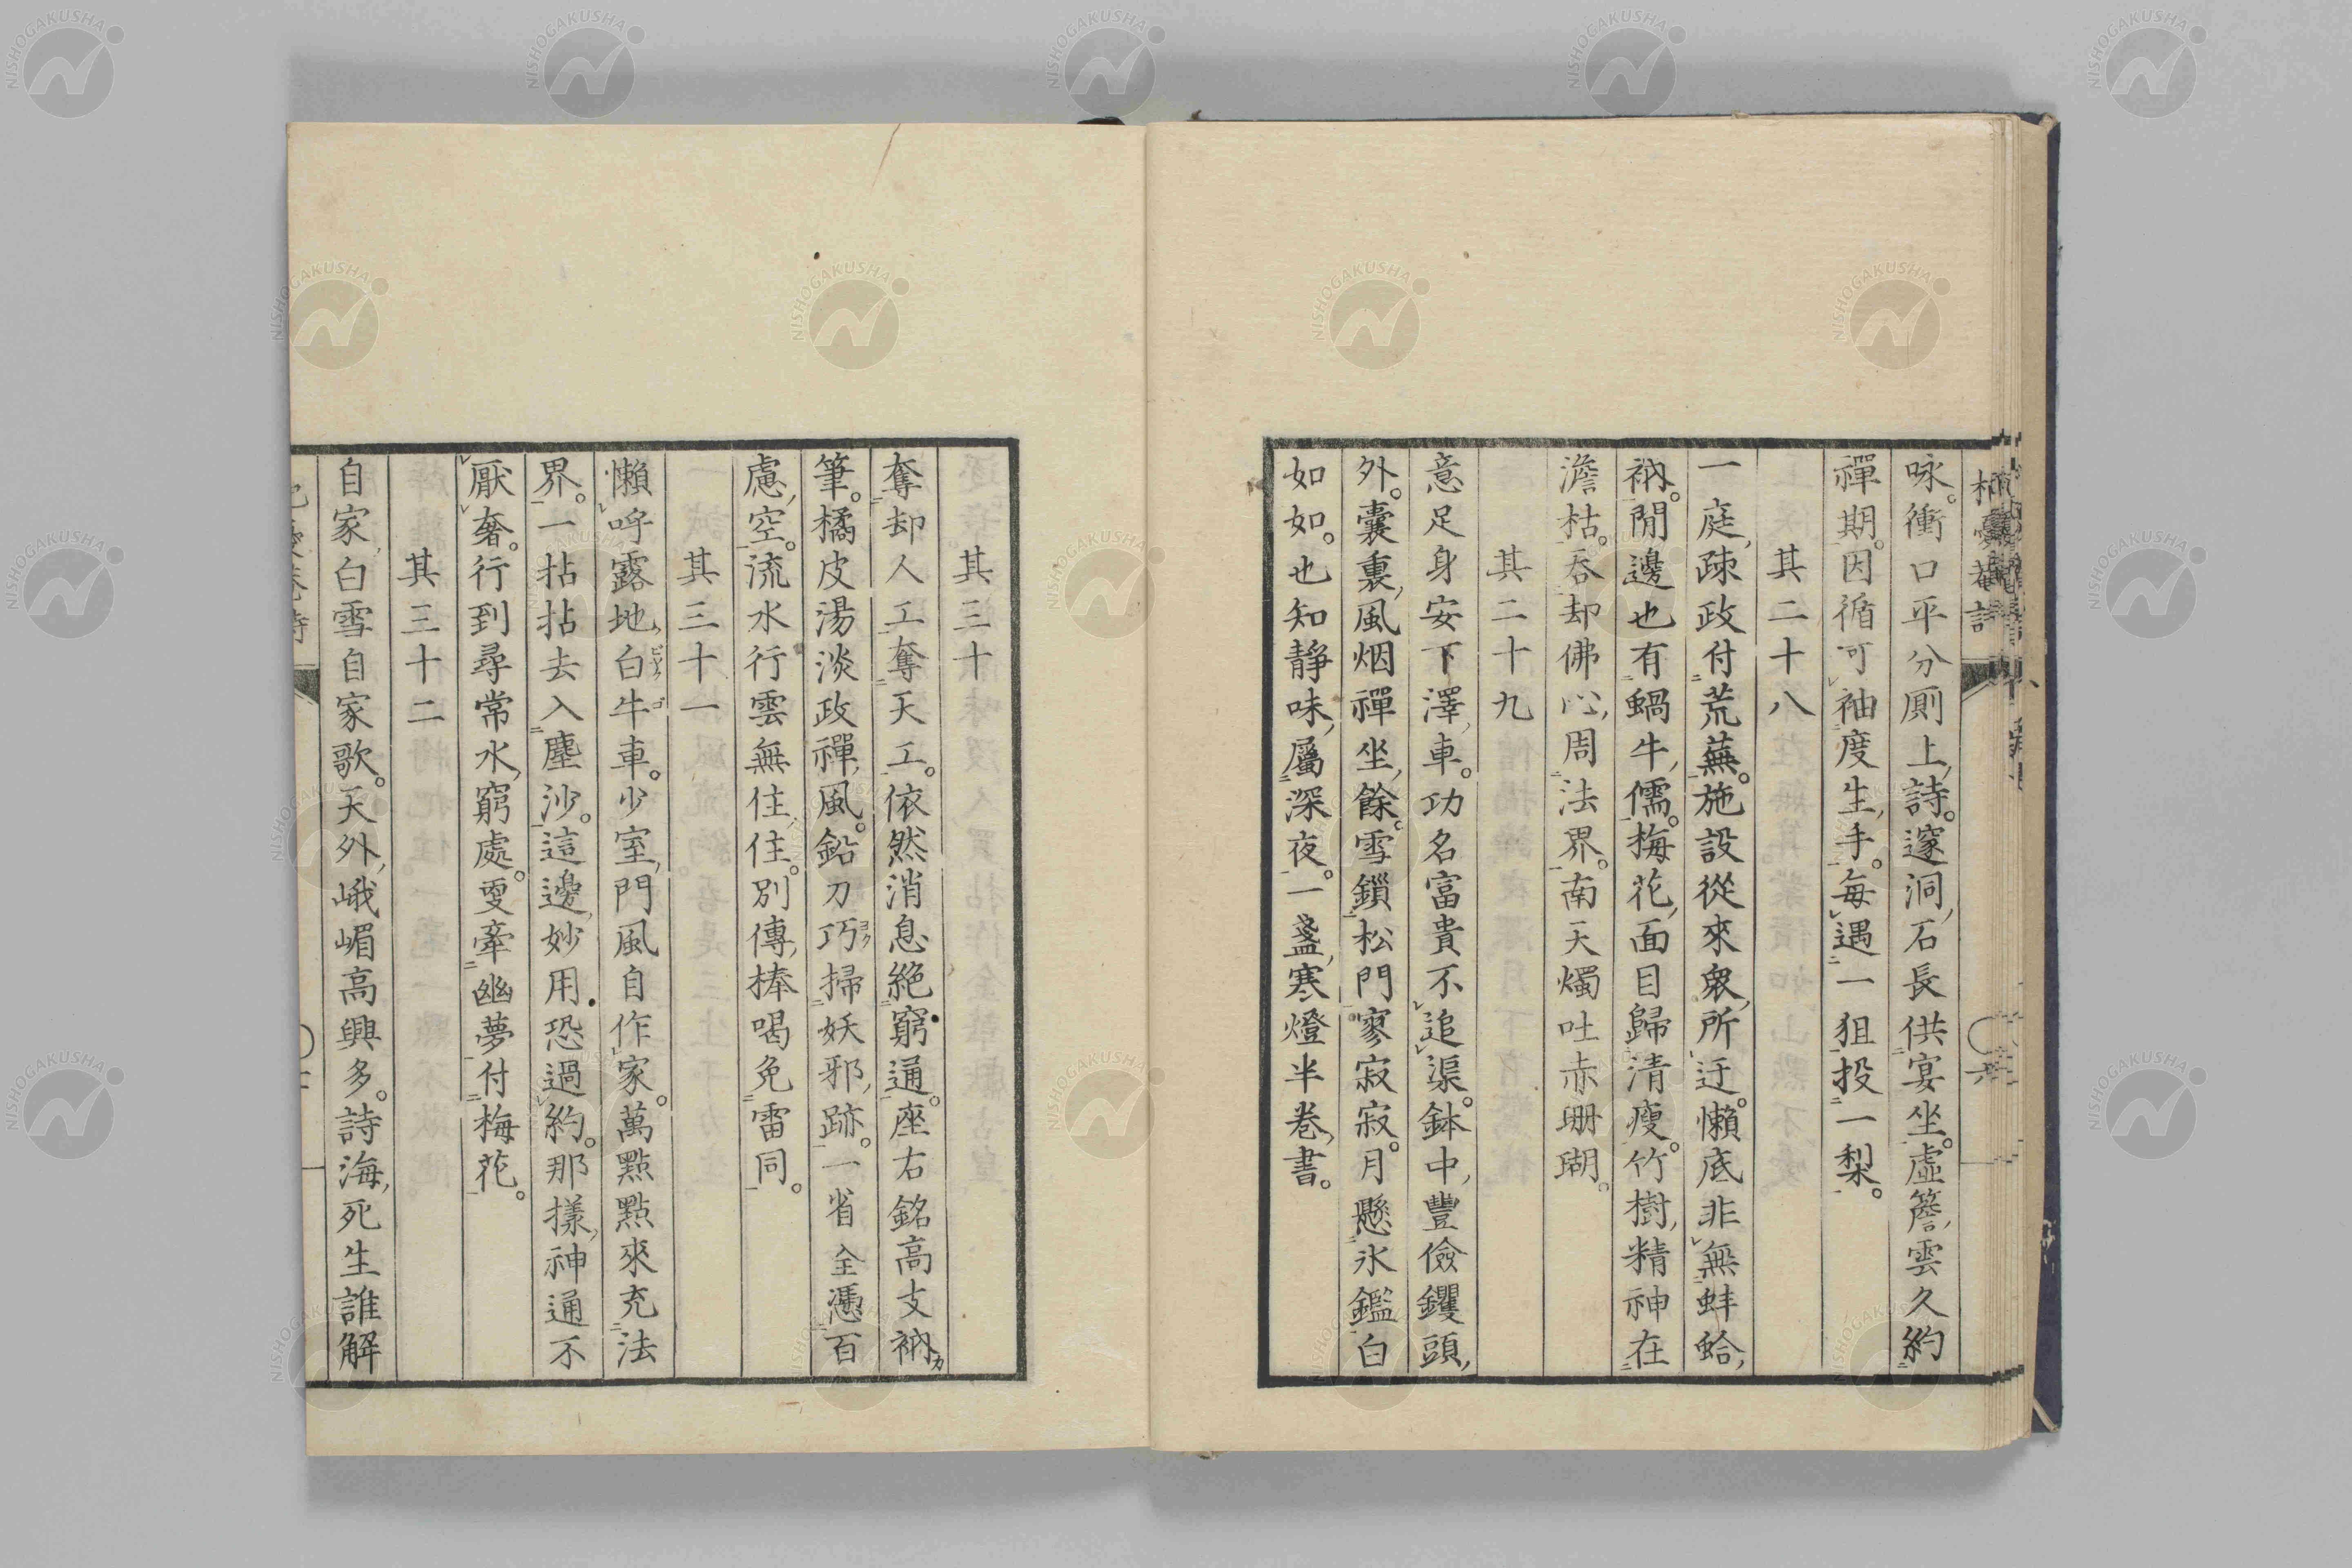 咏。衝口平分厠上詩。邃洞石長供宴坐。虛簷雲久約
禪期。因循可袖度生手。每遇一狙投一梨。
其二十八
一庭疎政付荒蕪。施設從來衆所迂。懶底非無蚌蛤
衲。閒邊也有蝸牛儒。梅花面目歸清瘦。竹樹精神在
澹枯。吞却佛心周法界。南天燭吐赤珊瑚。
其二十九
意足身安下澤車。功名富貴不追渠。鉢中豐儉钁頭
外。囊裏風烟禪坐餘。雪鎖松門寥寂寂。月懸氷鑑白
如如。也知靜味屬深夜。一盞寒燈半卷書。
其三十
奪却人工奪天工。依然消息絶窮通。座右銘高支衲
筆。橘皮湯淡政禪風。鉛刀巧掃妖邪跡。一省全憑百
慮空。流水行雲無住住。別傳棒喝免雷同。
其三十一
懶呼露地白牛車。少室門風自作家。萬點點來充法
界。一拈拈去入塵沙。這邊妙用恐過約。那樣神通不
厭奢。行到尋常水窮處。更牽幽夢付梅花。
其三十二
自家白雪自家歌。天外峨嵋高興多。詩海死生誰解
NISHOGAKUSHA